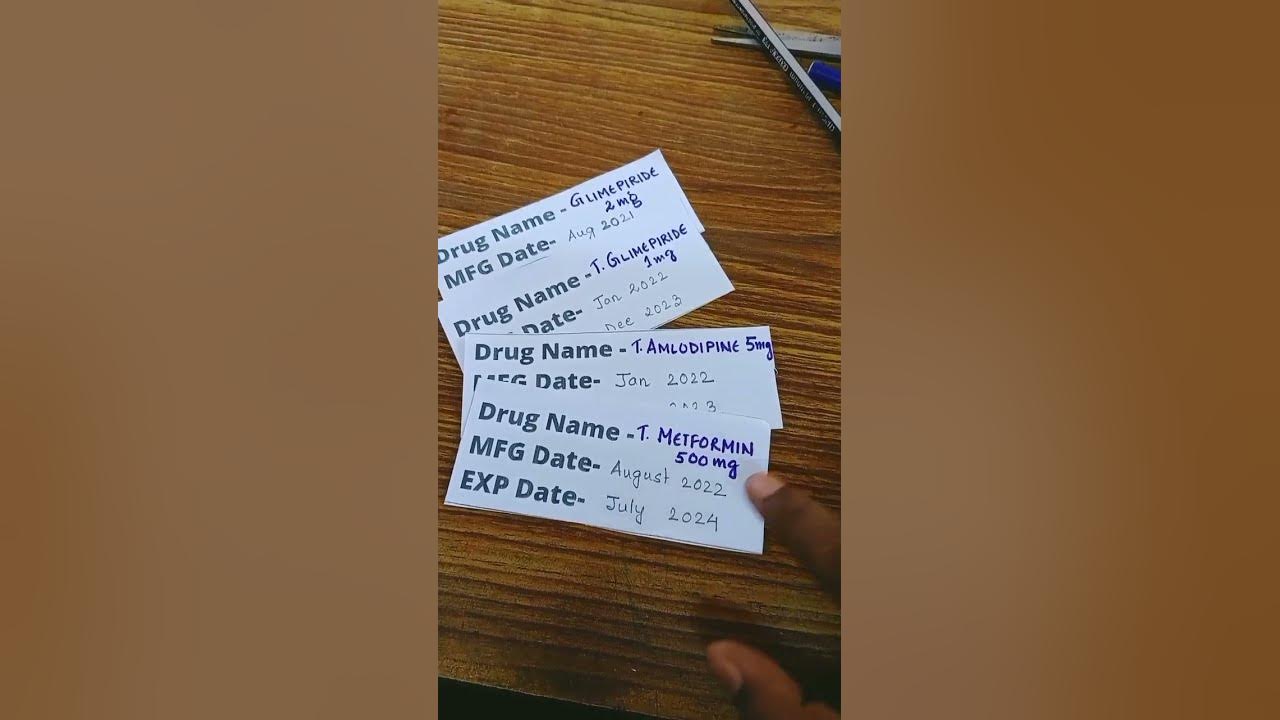 Drug Name - GLIMEPIRIDE
2 mg
MFG Date- Aug 2021
Drug Name - T. GLIMEPIRIDE
1 mg
Date- Jan 2022
Dec 2023
Drug Name - T. AMLODIPINE 5mg
MFG Date- Jan 2022
2023
Drug Name - T. METFORMIN
500 mg
MFG Date- August 2022
EXP Date- July 2024